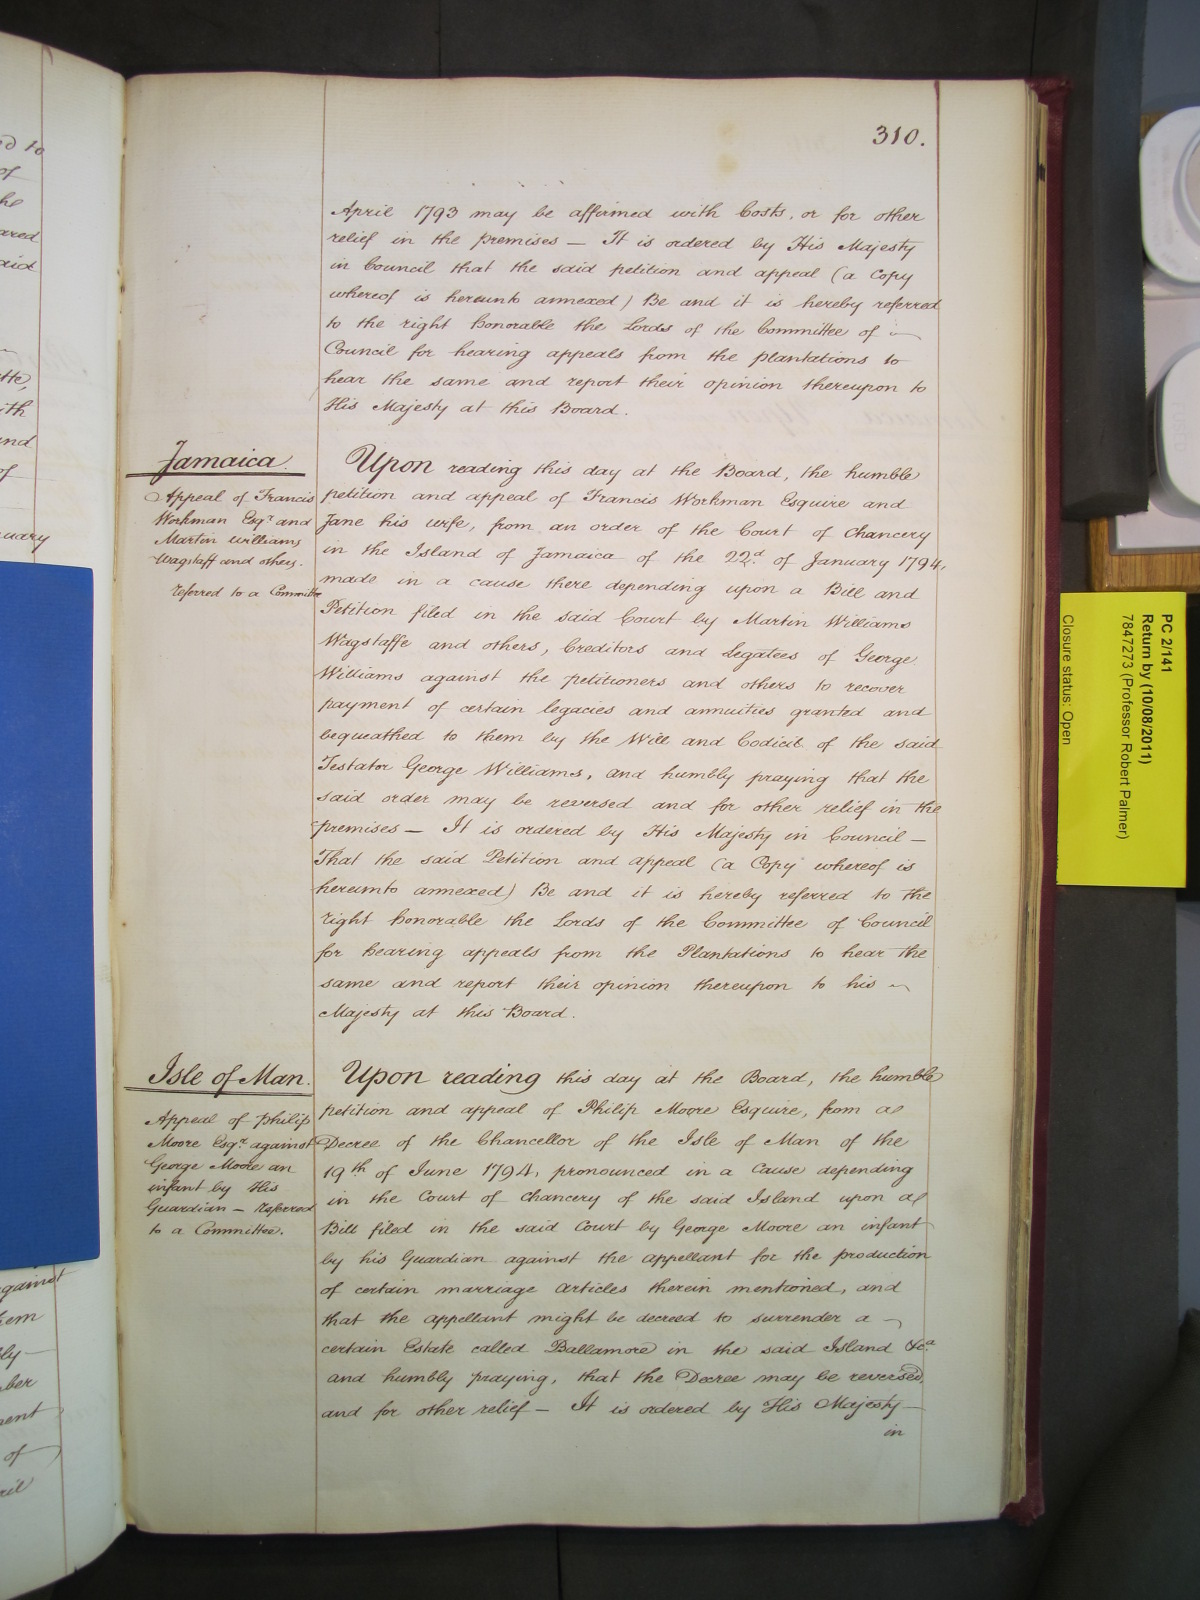 310.
April 1793 may be affirmed with Costs, or for other
relief in the premises — It is ordered by His Majesty
in Council that the said petition and appeal (a Copy
whereof is hereunto annexed) Be and it is hereby referred
to the right honorable the Lords of the Committee of
Council for hearing appeals from the plantations to
hear the same and report their opinion thereupon to
His Majesty at this Board.
Jamaica.
Appeal of Francis
Workman Esqr. and
Martin Williams
Wagstaff and others.
referred to a Committee
Upon reading this day at the Board, the humble
petition and appeal of Francis Workman Esquire and
Jane his wife, from an order of the Court of Chancery
in the Island of Jamaica of the 22d. of January 1794,
made in a cause there depending upon a Bill and
Petition filed in the said Court by Martin Williams
Wagstaffe and others, Creditors and Legatees of George
Williams against the petitioners and others to recover
payment of certain legacies and annuities granted and
bequeathed to them by the Will and Codicil of the said
Testator George Williams, and humbly praying that the
said order may be reversed and for other relief in the
premises — It is ordered by His Majesty in Council —
That the said Petition and appeal (a Copy whereof is
hereunto annexed) Be and it is hereby referred to the
right honorable the Lords of the Committee of Council
for hearing appeals from the Plantations to hear the
same and report their opinion thereupon to his
Majesty at this Board.
Isle of Man.
Appeal of Philip
Moore Esqr. against
George Moore an
infant by His
Guardian — referred
to a Committee.
Upon reading this day at the Board, the humble
petition and appeal of Philip Moore Esquire, from a
Decree of the Chancellor of the Isle of Man of the
19th of June 1794, pronounced in a Cause depending
in the Court of Chancery of the said Island upon a
Bill filed in the said Court by George Moore an infant
by his Guardian against the appellant for the production
of certain marriage articles therein mentioned, and
that the appellant might be decreed to surrender a
certain Estate called Ballamore in the said Island &ca
and humbly praying, that the Decree may be reversed,
and for other relief — It is ordered by His Majesty —
in
PC 2/141
Return by (10/08/2011)
7847273 (Professor Robert Palmer)
Closure status: Open